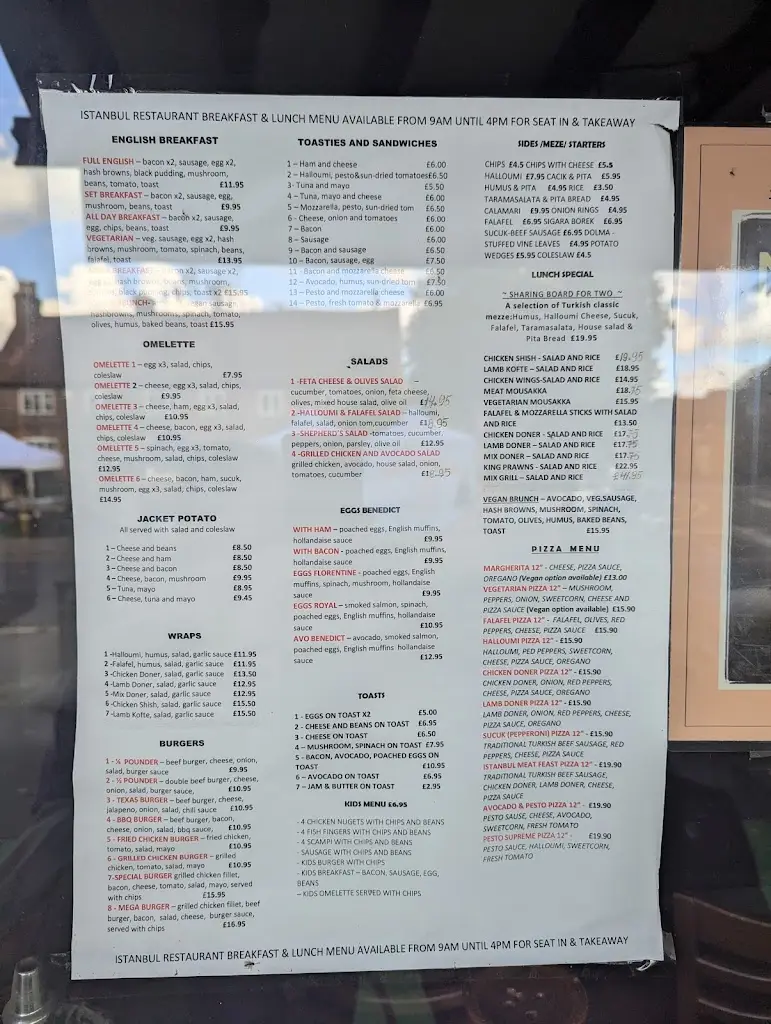 ISTANBUL RESTAURANT BREAKFAST & LUNCH MENU AVAILABLE FROM 9AM UNTIL 4PM FOR SEAT IN & TAKEAWAY
ENGLISH BREAKFAST
FULL ENGLISH – bacon x2, sausage, egg x2,
hash browns, black pudding, mushroom,
beans, tomato, toast £11.95
SET BREAKFAST – bacon x2, sausage, egg,
mushroom, beans, toast £9.95
ALL DAY BREAKFAST – bacon x2, sausage,
egg, chips, beans, toast £9.95
VEGETARIAN – veg. sausage, egg x2, hash
browns, mushroom, tomato, spinach, beans,
falafel, toast £13.95
BREAKFAST – bacon x2, sausage x2,
hash browns, beans, mushroom,
black pudding, chips, toast x2 £15.95
sausage,
hashbrowns, mushrooms, spinach, tomato,
olives, humus, baked beans, toast £15.95
OMELETTE
OMELETTE 1 – egg x3, salad, chips,
coleslaw £7.95
OMELETTE 2 – cheese, egg x3, salad, chips,
coleslaw £9.95
OMELETTE 3 – cheese, ham, egg x3, salad,
chips, coleslaw £10.95
OMELETTE 4 – cheese, bacon, egg x3, salad,
chips, coleslaw £10.95
OMELETTE 5 – spinach, egg x3, tomato,
cheese, mushroom, salad, chips, coleslaw
£12.95
OMELETTE 6 – cheese, bacon, ham, sucuk,
mushroom, egg x3, salad, chips, coleslaw
£14.95
JACKET POTATO
All served with salad and coleslaw
1 – Cheese and beans £8.50
2 – Cheese and ham £8.50
3 – Cheese and bacon £8.50
4 – Cheese, bacon, mushroom £9.95
5 – Tuna, mayo £8.95
6 – Cheese, tuna and mayo £9.45
WRAPS
1 -Halloumi, humus, salad, garlic sauce £11.95
2 -Falafel, humus, salad, garlic sauce £11.95
3 -Chicken Doner, salad, garlic sauce £13.50
4 -Lamb Doner, salad, garlic sauce £12.95
5 -Mix Doner, salad, garlic sauce £12.95
6 -Chicken Shish, salad, garlic sauce £15.50
7 -Lamb Kofte, salad, garlic sauce £15.50
BURGERS
1 - ¼ POUNDER – beef burger, cheese, onion,
salad, burger sauce £9.95
2 - ½ POUNDER – double beef burger, cheese,
onion, salad, burger sauce, £10.95
3 - TEXAS BURGER – beef burger, cheese,
jalapeno, onion, salad, chili sauce £10.95
4 - BBQ BURGER – beef burger, bacon,
cheese, onion, salad, bbq sauce, £10.95
5 - FRIED CHICKEN BURGER – fried chicken,
tomato, salad, mayo £10.95
6 - GRILLED CHICKEN BURGER – grilled
chicken, tomato, salad, mayo £10.95
7-SPECIAL BURGER grilled chicken fillet,
bacon, cheese, tomato, salad, mayo, served
with chips £15.95
8 - MEGA BURGER – grilled chicken fillet, beef
burger, bacon, salad, cheese, burger sauce,
served with chips £16.95
TOASTIES AND SANDWICHES
1 – Ham and cheese £6.00
2 – Halloumi, pesto&sun-dried tomatoes£6.50
3- Tuna and mayo £5.50
4 – Tuna, mayo and cheese £6.00
5 – Mozzarella, pesto, sun-dried tom £6.50
6 - Cheese, onion and tomatoes £6.00
7 – Bacon £6.00
8 – Sausage £6.00
9 – Bacon and sausage £6.50
10 – Bacon, sausage, egg £7.50
11 - Bacon and mozzarella cheese £6.50
12 – Avocado, humus, sun-dried tom £7.50
13 – Pesto and mozzarella cheese £6.00
14 – Pesto, fresh tomato & mozzarella £6.95
SALADS
1 -FETA CHEESE & OLIVES SALAD –
cucumber, tomatoes, onion, feta cheese,
olives, mixed house salad, olive oil £14.95
2 -HALLOUMI & FALAFEL SALAD – halloumi,
falafel, salad, onion tom,cucumber .95
3 -SHEPHERD'S SALAD -tomatoes, cucumber,
peppers, onion, parsley, olive oil £12.95
4 -GRILLED CHICKEN AND AVOCADO SALAD
grilled chicken, avocado, house salad, onion,
tomatoes, cucumber .95
EGGS BENEDICT
WITH HAM – poached eggs, English muffins,
hollandaise sauce £9.95
WITH BACON - poached eggs, English muffins,
hollandaise sauce £9.95
EGGS FLORENTINE - poached eggs, English
muffins, spinach, mushroom, hollandaise
sauce £9.95
EGGS ROYAL – smoked salmon, spinach,
poached eggs, English muffins, hollandaise
sauce £10.95
AVO BENEDICT – avocado, smoked salmon,
poached eggs, English muffins hollandaise
sauce £12.95
TOASTS
1 - EGGS ON TOAST X2 £5.00
2 - CHEESE AND BEANS ON TOAST £6.95
3 - CHEESE ON TOAST £6.50
4 – MUSHROOM, SPINACH ON TOAST £7.95
5 - BACON, AVOCADO, POACHED EGGS ON
TOAST £10.95
6 – AVOCADO ON TOAST £6.95
7 – JAM & BUTTER ON TOAST £2.95
KIDS MENU £6.95
- 4 CHICKEN NUGETS WITH CHIPS AND BEANS
- 4 FISH FINGERS WITH CHIPS AND BEANS
- 4 SCAMPI WITH CHIPS AND BEANS
- SAUSAGE WITH CHIPS AND BEANS
- KIDS BURGER WITH CHIPS
- KIDS BREAKFAST – BACON, SAUSAGE, EGG,
BEANS
– KIDS OMELETTE SERVED WITH CHIPS
SIDES /MEZE/ STARTERS
CHIPS £4.5 CHIPS WITH CHEESE £5.5
HALLOUMI £7.95 CACIK & PITA £5.95
HUMUS & PITA £4.95 RICE £3.50
TARAMASALATA & PITA BREAD £4.95
CALAMARI £9.95 ONION RINGS £4.95
FALAFEL £6.95 SIGARA BOREK £6.95
SUCUK-BEEF SAUSAGE £6.95 DOLMA -
STUFFED VINE LEAVES £4.95 POTATO
WEDGES £5.95 COLESLAW £4.5
LUNCH SPECIAL
~ SHARING BOARD FOR TWO ~
A selection of Turkish classic
mezze:Humus, Halloumi Cheese, Sucuk,
Falafel, Taramasalata, House salad &
Pita Bread £19.95
CHICKEN SHISH - SALAD AND RICE £18.95
LAMB KOFTE – SALAD AND RICE £18.95
CHICKEN WINGS-SALAD AND RICE £14.95
MEAT MOUSAKKA £18.
VEGETARIAN MOUSAKKA £15.95
FALAFEL & MOZZARELLA STICKS WITH SALAD
AND RICE £13.50
CHICKEN DONER - SALAD AND RICE £17.
LAMB DONER – SALAD AND RICE £17.
MIX DONER – SALAD AND RICE £17.
KING PRAWNS - SALAD AND RICE £22.95
MIX GRILL – SALAD AND RICE
VEGAN BRUNCH – AVOCADO, VEG.SAUSAGE,
HASH BROWNS, MUSHROOM, SPINACH,
TOMATO, OLIVES, HUMUS, BAKED BEANS,
TOAST £15.95
PIZZA MENU
MARGHERITA 12" - CHEESE, PIZZA SAUCE,
OREGANO (Vegan option available) £13.00
VEGETARIAN PIZZA 12" – MUSHROOM,
PEPPERS, ONION, SWEETCORN, CHEESE AND
PIZZA SAUCE (Vegan option available) £15.90
FALAFEL PIZZA 12" - FALAFEL, OLIVES, RED
PEPPERS, CHEESE, PIZZA SAUCE £15.90
HALLOUMI PIZZA 12" - £15.90
HALLOUMI, PED PEPPERS, SWEETCORN,
CHEESE, PIZZA SAUCE, OREGANO
CHICKEN DONER PIZZA 12" - £15.90
CHICKEN DONER, ONION, RED PEPPERS,
CHEESE, PIZZA SAUCE, OREGANO
LAMB DONER PIZZA 12" - £15.90
LAMB DONER, ONION, RED PEPPERS, CHEESE,
PIZZA SAUCE, OREGANO
SUCUK (PEPPERONI) PIZZA 12" - £15.90
TRADITIONAL TURKISH BEEF SAUSAGE, RED
PEPPERS, CHEESE, PIZZA SAUCE
ISTANBUL MEAT FEAST PIZZA 12" - £19.90
TRADITIONAL TURKISH BEEF SAUSAGE,
CHICKEN DONER, LAMB DONER, CHEESE,
PIZZA SAUCE
AVOCADO & PESTO PIZZA 12" - £19.90
PESTO SAUSE, CHEESE, AVOCADO,
SWEETCORN, FRESH TOMATO
PESTO SUPREME PIZZA 12" - £19.90
PESTO SAUCE, HALLOUMI, SWEETCORN,
FRESH TOMATO
ISTANBUL RESTAURANT BREAKFAST & LUNCH MENU AVAILABLE FROM 9AM UNTIL 4PM FOR SEAT IN & TAKEAWAY